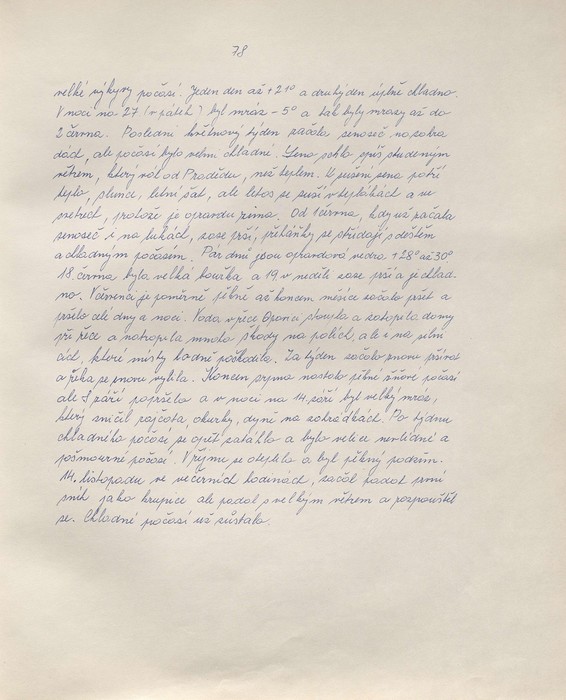 78
velké výkyvy počasí. Jeden den až +21° a druhý den úplně chladno.
V noci na 27 (v pátek) byl mráz -5° a tak byly mrazy až do
2 června. Poslední květnový týden začala senoseč na zahra
dách, ale počasí bylo velmi chladné. Seno schlo spíš studeným
větrem, který vál od Pradědu, než teplem. K sušení sena patří
teplo, slunce, letní šat, ale letos se suší v teplákách a ve
svetrech, protože je opravdu zima. Od 1 června, kdy už začala
senoseč i na lukách, zase prší, přeháňky se střídají s deštěm
a chladným počasím. Pár dní jsou opravdová vedra +28° až 30°
18. června byla velká bouřka a 19. v neděli zase prší a je chlad-
no. V červenci je poměrně pěkně až koncem měsíce začalo pršet a
pršelo celé dny a noci. Voda v řece stoupla a zatopila domy
při řece a natropila mnoho škody na polích, ale i na silni
cích, které místy hodně poškodila. Za týden začalo znovu pršet
a řeka se znovu vylila. Koncem srpna nastalo pěkné žňové počasí
ale v září popršelo a v noci na 14. září byl velký mráz,
který zničil rajčata, okurky, dýně na zahrádkách. Po týdnu
chladného počasí se opět zatáhlo a bylo velice nevlídné a
pošmourné počasí. V říjnu se oteplilo a byl pěkný podzim.
14. listopadu ve večerních hodinách, začal padat první
sníh jako krupice ale padal s velkým větrem a rozpouštěl
se. Chladné počasí už zůstalo.